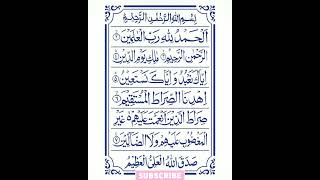 بِسْمِ اللهِ الرَّحْمٰنِ الرَّحِيْمِ
اَلْحَمْدُ لِلّٰهِ رَبِّ الْعٰلَمِيْنَ ۱
الرَّحْمٰنِ الرَّحِيْمِ ۲ مٰلِكِ يَوْمِ الدِّيْنِ ۳
اِيَّاكَ نَعْبُدُ وَ اِيَّاكَ نَسْتَعِيْنُ
اِهْدِنَا الصِّرَاطَ الْمُسْتَقِيْمَ
صِرَاطَ الَّذِيْنَ اَنْعَمْتَ عَلَيْهِمْ غَيْرِ
الْمَغْضُوْبِ عَلَيْهِمْ وَلَا الضَّآلِّيْنَ
صَدَقَ اللهُ الْعَلِيُّ الْعَظِيْمُ
SUBSCRIBE